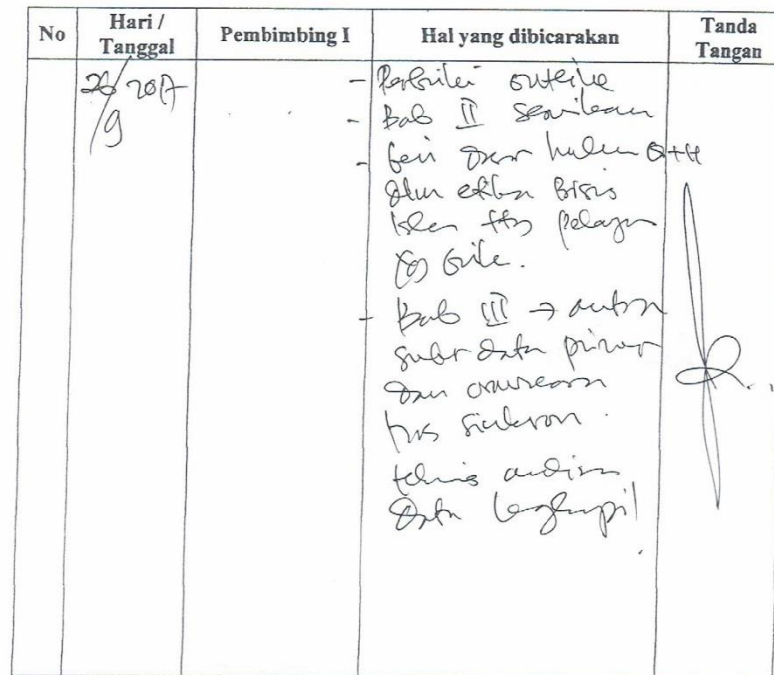 No
Hari / Tanggal
Pembimbing I
Hal yang dibicarakan
Tanda Tangan
26/9 2017
- Perbaiki outline
- Bab II sesuaikan
- beri Dasar hukum Q+H
dlm etika Bisnis
Islam ttg pelayan
yg baik.
- Bab III → antara
sumber data primer
dan
hrs sinkron.
teknis
Data lengkapi